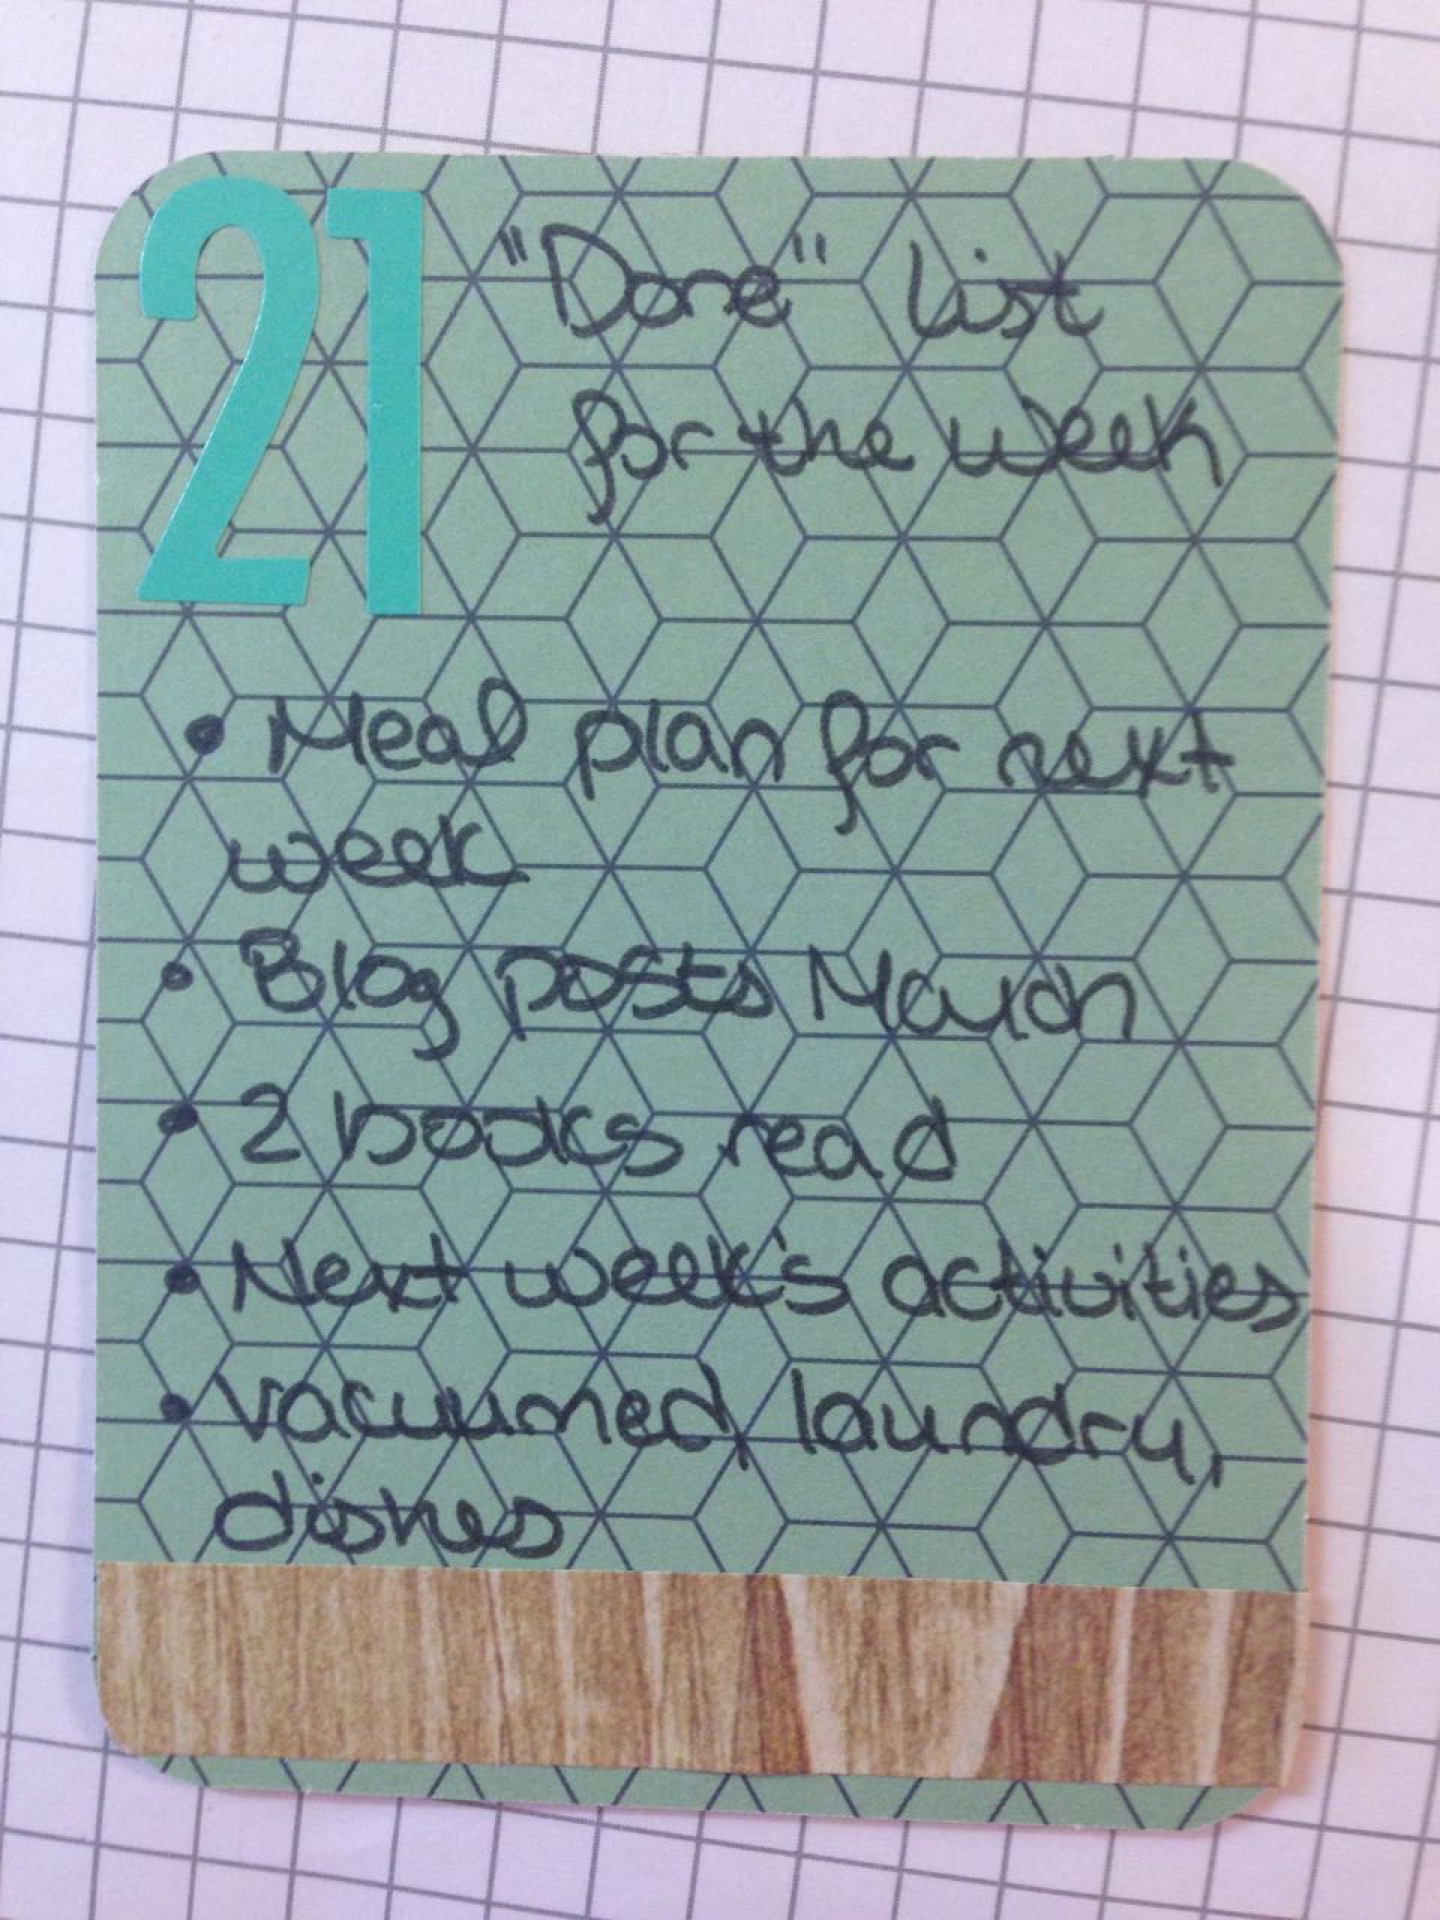 21
"Done" List
for the week
• Meal plan for next
week
• Blog posts March
• 2 books read
• Next week's activities
• Vacuumed, laundry,
dishes